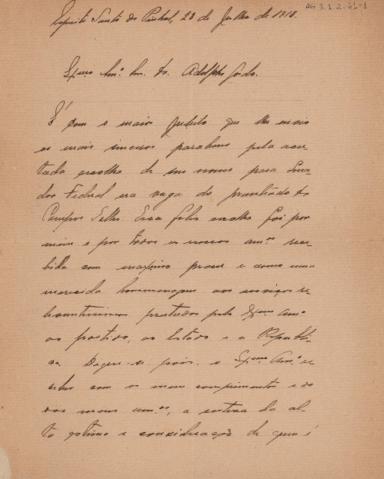 AG 3.1.2.61-1
Espirito Santo do Pinhal, 23 de Julho de 1913.
Exmo Amo Snr. Dr. Adolpho Gordo.
É com o maior jubilo que lhe envio
os mais sinceros parabens pela acer-
tada escolha de seu nome para Sena-
dor Federal na vaga do pranteado Dr.
Campos Salles. Essa feliz escolha foi por
mim e por todos os nossos amos rece-
bida com maximo prazer e como uma
merecida homenagem aos serviços re-
levantissimos prestados pelo Exmo Amo
ao partido, ao Estado e a Republi-
ca. Digne-se pois o Exmo Amo re-
ceber com os meus comprimentos e os
dos meus amos, a certeza da al-
ta estima e consideração de quem é